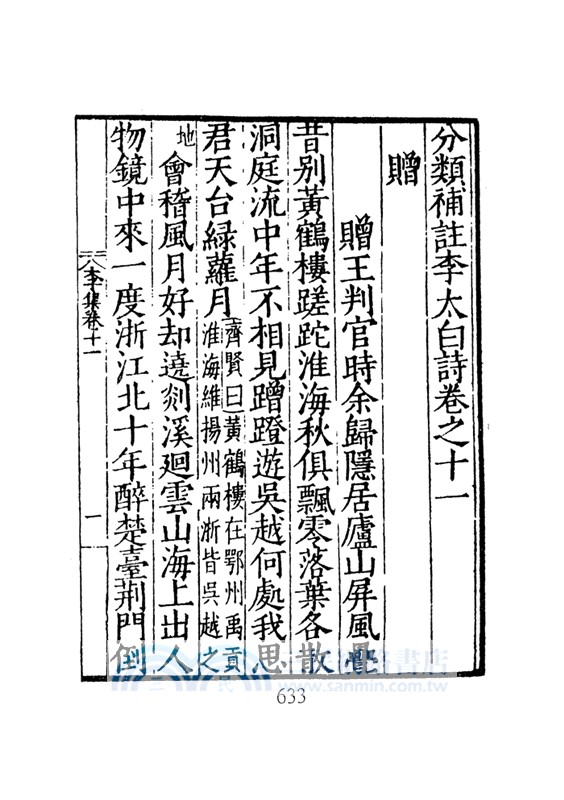 分類補註李太白詩卷之十一
贈
贈王判官時余歸隱居廬山屏風疊
昔別黃鶴樓蹉跎淮海秋俱飄零落葉各散
洞庭流中年不相見蹭蹬遊吳越何處我思
君天台緑蘿月
齊賢曰黃鶴樓在鄂州禹貢
淮海維揚州兩浙皆吳越之
地
會稽風月好却遶剡溪廻雲山海上出人
物鏡中來一度浙江北十年醉楚臺荆門倒
李集卷十一
一
路書店
www.sanmin.com.tw
三民
633